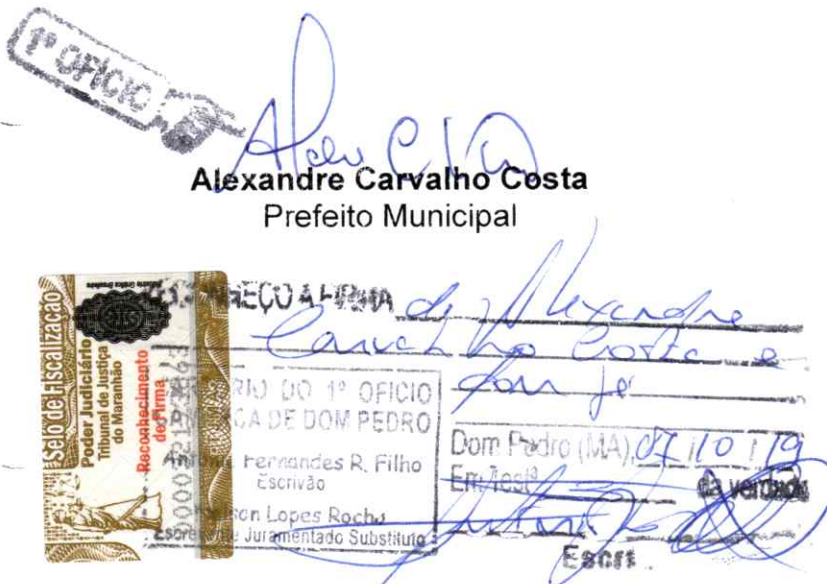 1º OFÍCIO
Alexandre Carvalho Costa
Prefeito Municipal
Selo de Fiscalização
Poder Judiciário
Tribunal de Justiça
do Maranhão
Reconhecimento
de Firma
A FIRMA de Alexandre
Carvalho Costa e
dou fé
RIO DO 1º OFICIO
CA DE DOM PEDRO
Fernandes R. Filho
Escrivão
Lopes Rocha
Juramentado Substituto
Dom Pedro (MA), 07 / 10 / 19
Em Testº da verdade